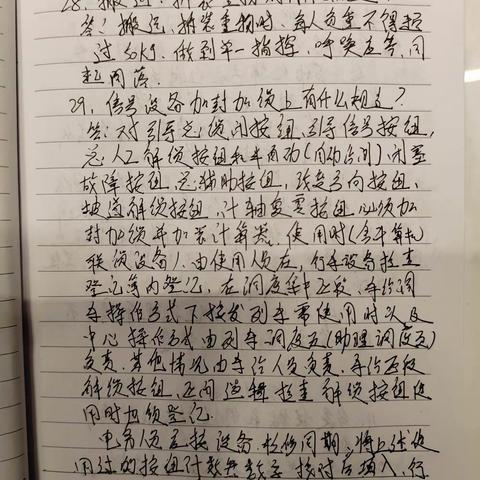 28、搬运、拆装重物时
答：搬运、拆装重物时、每人负重不得超
过50kg．做到单一指挥、呼唤应答、同
起同落．
29、信号设备加封加锁上有什么规定？
答：对引导总锁闭按钮、引导信号按钮、
总人工解锁按钮和半自动（自动站间）闭塞
故障按钮、总辅助按钮、改变方向按钮、
坡道解锁按钮、计轴复零按钮、必须加
封加锁并加装计算器．使用时（含计算机
联锁设备）、由使用人员在，行车设备检查
登记簿内登记、在调度集中区段、车站调
车操作方式下按发列车需使用时以及
中心操作方式由列车调度员（助理调度员）
负责．其他情况由车站人员负责．车站区段
解锁按钮、区间逻辑检查解锁按钮使
用时加锁登记．
电务人员应按设备检修周期、将上述使
用过的按钮计数器数字核对后填入、行